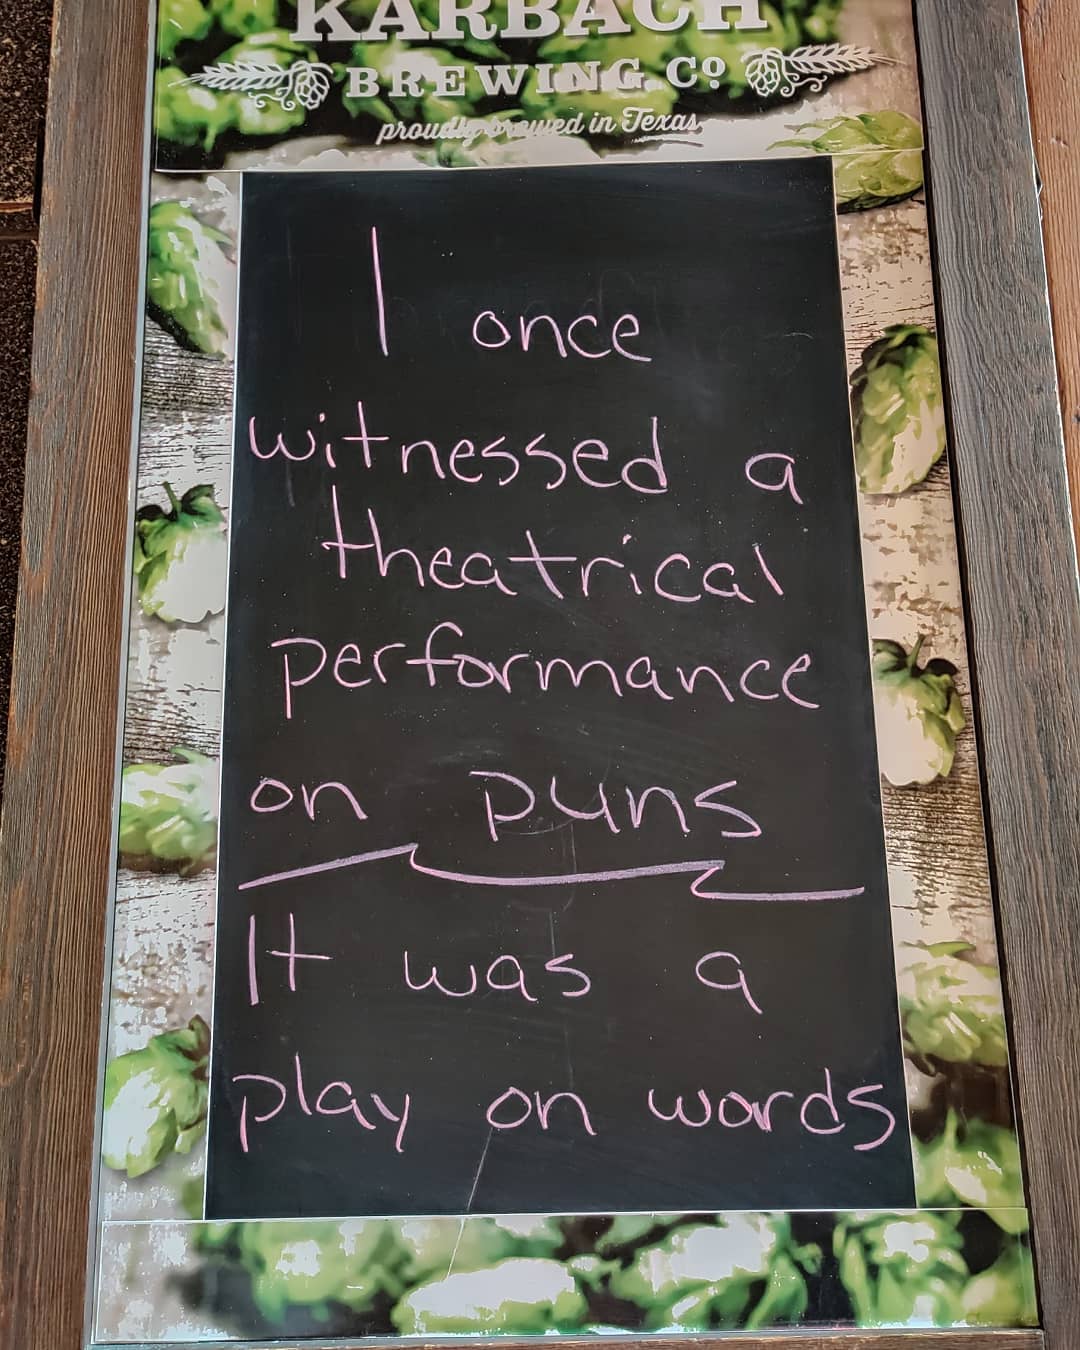 KARBACH
BREWING Co
proudly brewed in Texas
I once
witnessed a
theatrical
performance
on puns
It was a
play on words